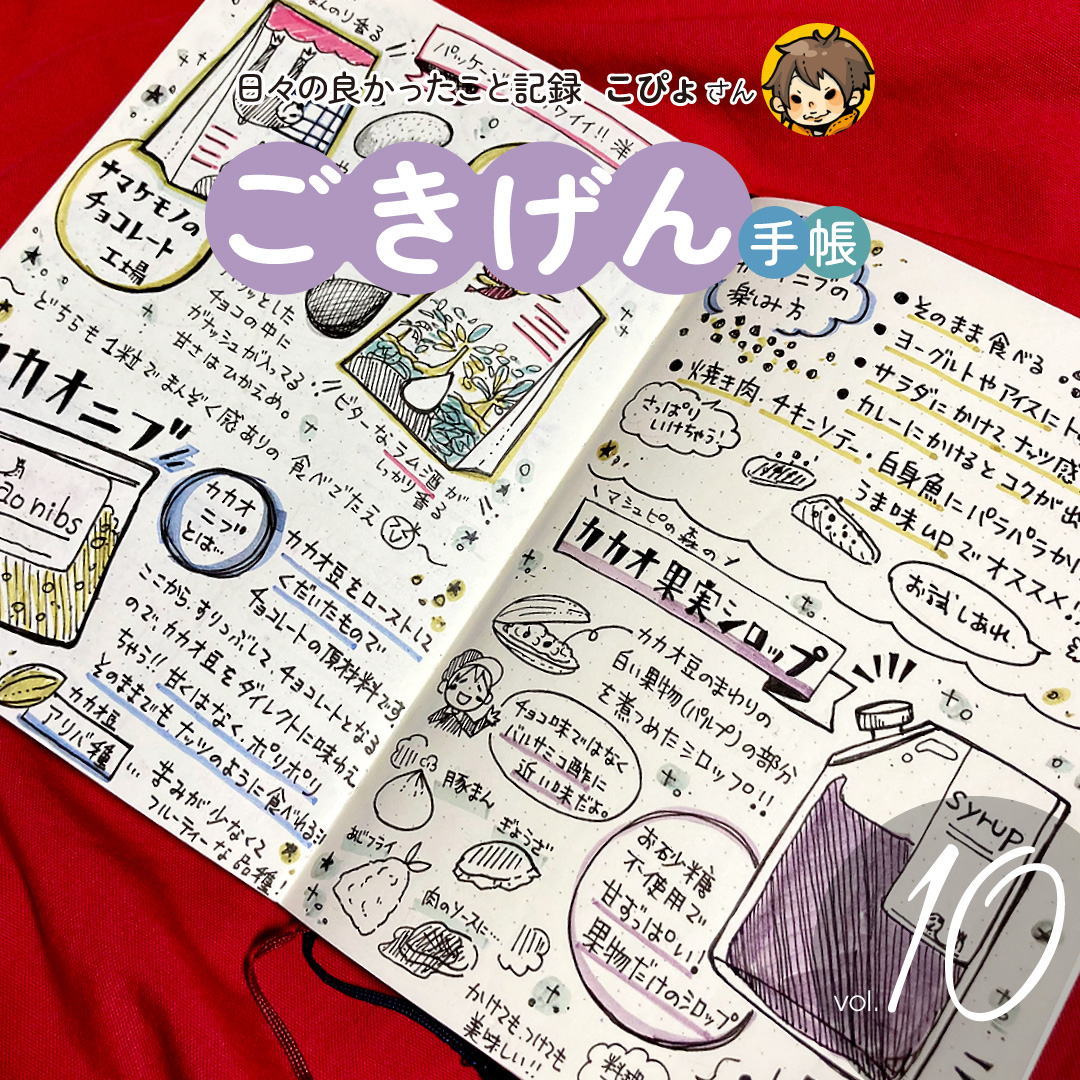 日々の良かったこと記録 こぴょさん
ごきげん手帳
んのり香る
パッケ
ワイイ!! 洋
ナマケモノの
チョコレート
工場
ッとした
チョコの中に
ガナッシュが入ってる
甘さはひかえめ。
ビターなラム酒が
しっかり香る
〜どちらも1粒でまんぞく感ありの食べごたえ〜
カカオニブ
ao nibs
カカオ
ニブ
とは…
カカオ豆をローストして
くだいたもので
チョコレートの原材料です
ここから、すりつぶして、チョコレートとなる
ので、カカオ豆をダイレクトに味わえ
ちゃう!! 甘くはなく ポリポリ
そのままでもナッツのように食べれる!!
カカオ豆
アリバ種
… 苦みが少なくて
フルーティーな品種!
ニブの
楽しみ方
●そのまま食べる
●ヨーグルトやアイスにト
●サラダにかけて、ナッツ感
●カレーにかけるとコクが出
●焼き肉、チキンソテー、白身魚にパラパラかけ
うま味upでオススメ!!
さっぱり
いけちゃう!
お試しあれ
\マシュピの森の/
カカオ果実シロップ
カカオ豆のまわりの
白い果物(パルプ)の部分
を煮つめたシロップ!!
チョコ味ではなく
バルサミコ酢に
近い味だよ。
豚まん
ぎょうざ
あじフライ
肉のソースに…
かけてもつけても
美味しい!!
お砂糖
不使用で
甘ずっぱい!
果物だけのシロップ
syrup
料理
vol.10